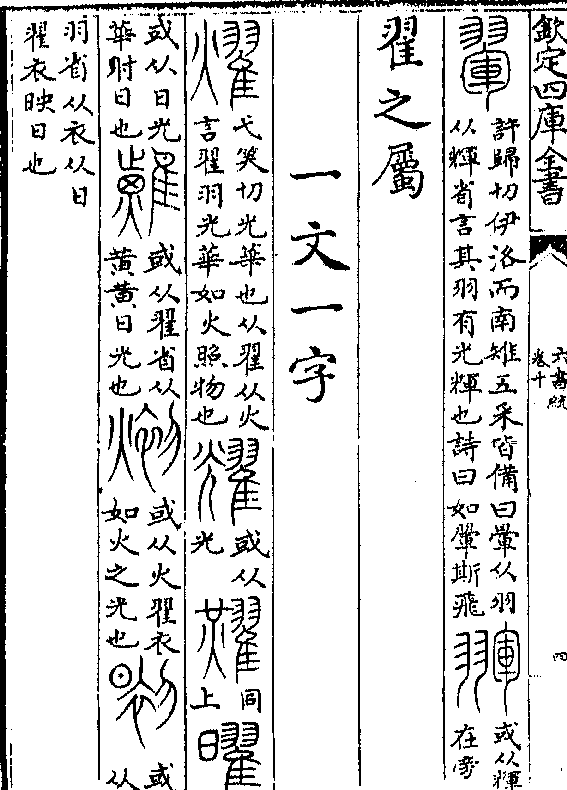 欽定四庫全書
六書統
卷十
四
翬
許歸切伊洛而南雉五采皆備曰翬从羽
从輝省言其羽有光輝也詩曰如翬斯飛
或从輝
在旁
翟之屬
一文一字
燿
弋笑切光華也从翟从火
言翟羽光華如火照物也
或从
光
同
上
曜
或从日光
華財日也
或从翟省从
黄黄日光也
或从火翟衣
如火之光也
或
从
羽省从衣从日
翟衣映日也